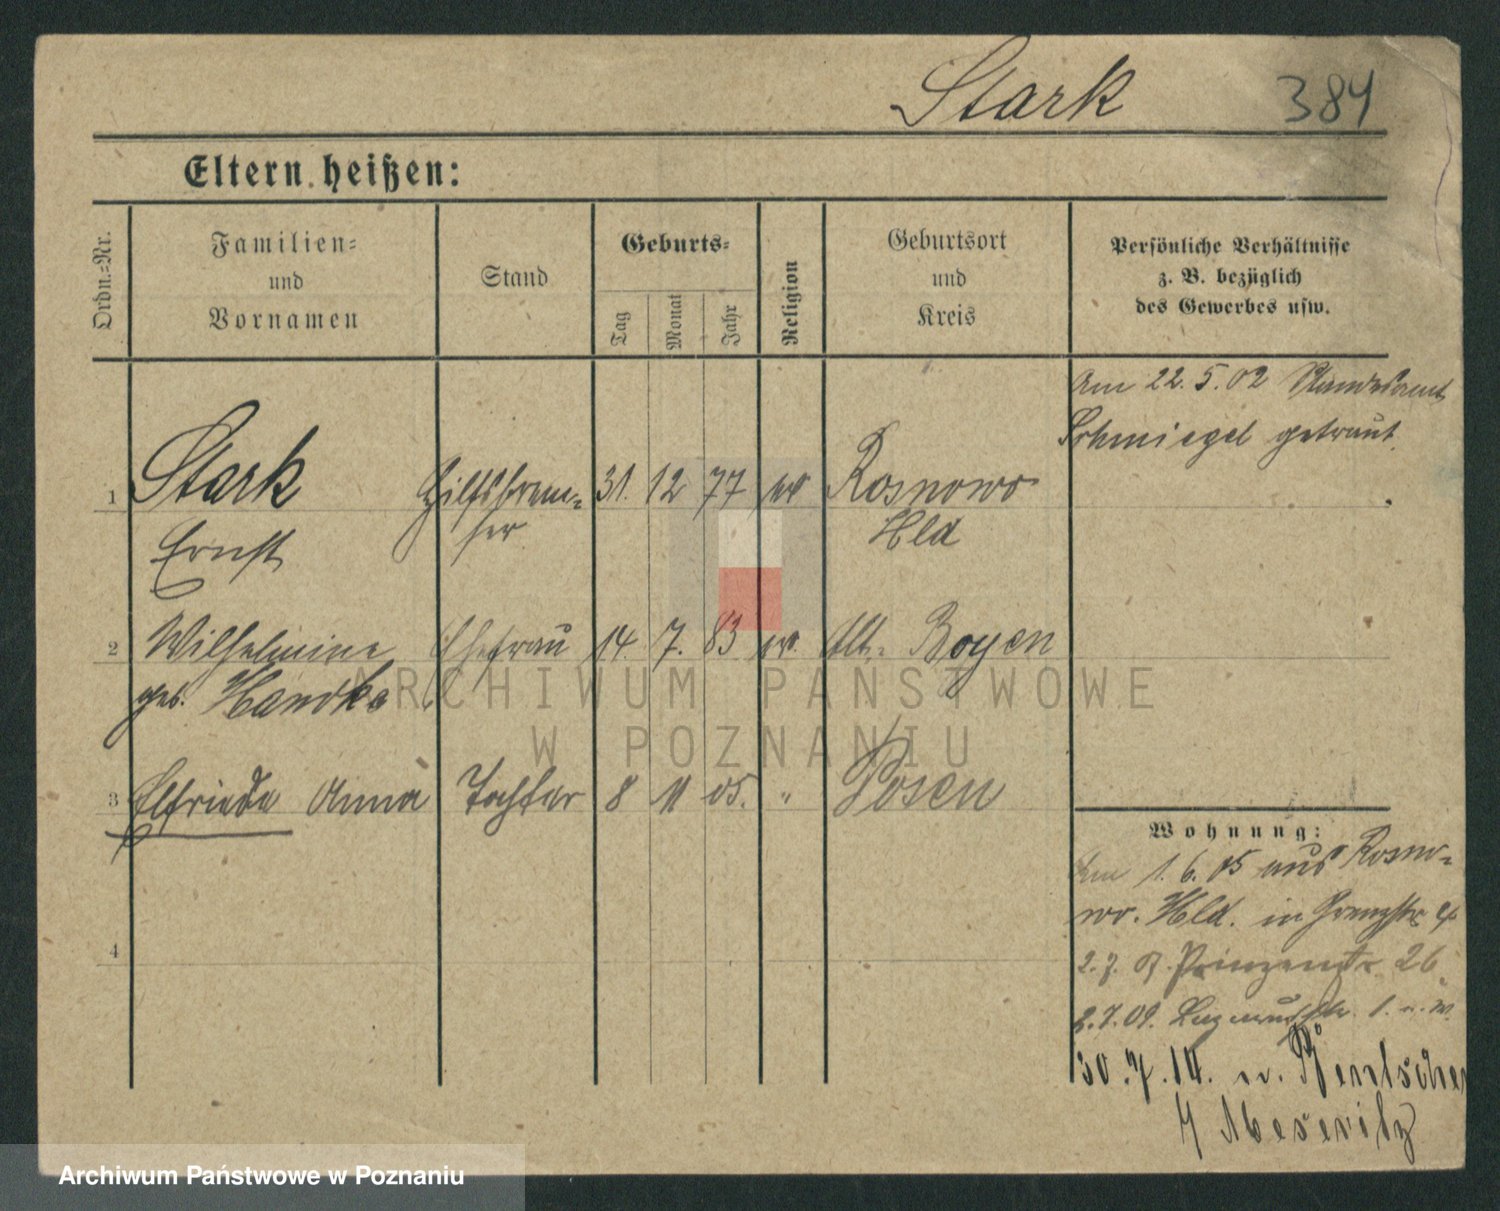 Stark 384
Eltern heißen:
Ordn.=Nr.
Familien=
und
Vornamen
Stand
Geburts=
Tag
Monat
Jahr
Religion
Geburtsort
und
Kreis
Persönliche Verhältnisse
z. B. bezüglich
des Gewerbes usw.
Am 22. 5. 02 Standesamt
Schmiegel getraut.
1 Stark Hilfsbrem= 31. 12 77 ev Rosnowo
Ernst ser Hld
2 Wilhelmine Ehefrau 14. 7. 83 ev. Alt= Boyen
geb. Handke
3 Elfriede Anna Tochter 8 11 05. " Posen
4
Wohnung:
Am 1. 6. 05 aus Rosno=
wo. Hld. in Grenzstr 4
2. 7. 07. Prinzenstr 26
2. 7. 09. 1.
30. 7. 14. n. Bentschen
Meseritz
ARCHIWUM PAŃSTWOWE
W POZNANIU
Archiwum Państwowe w Poznaniu